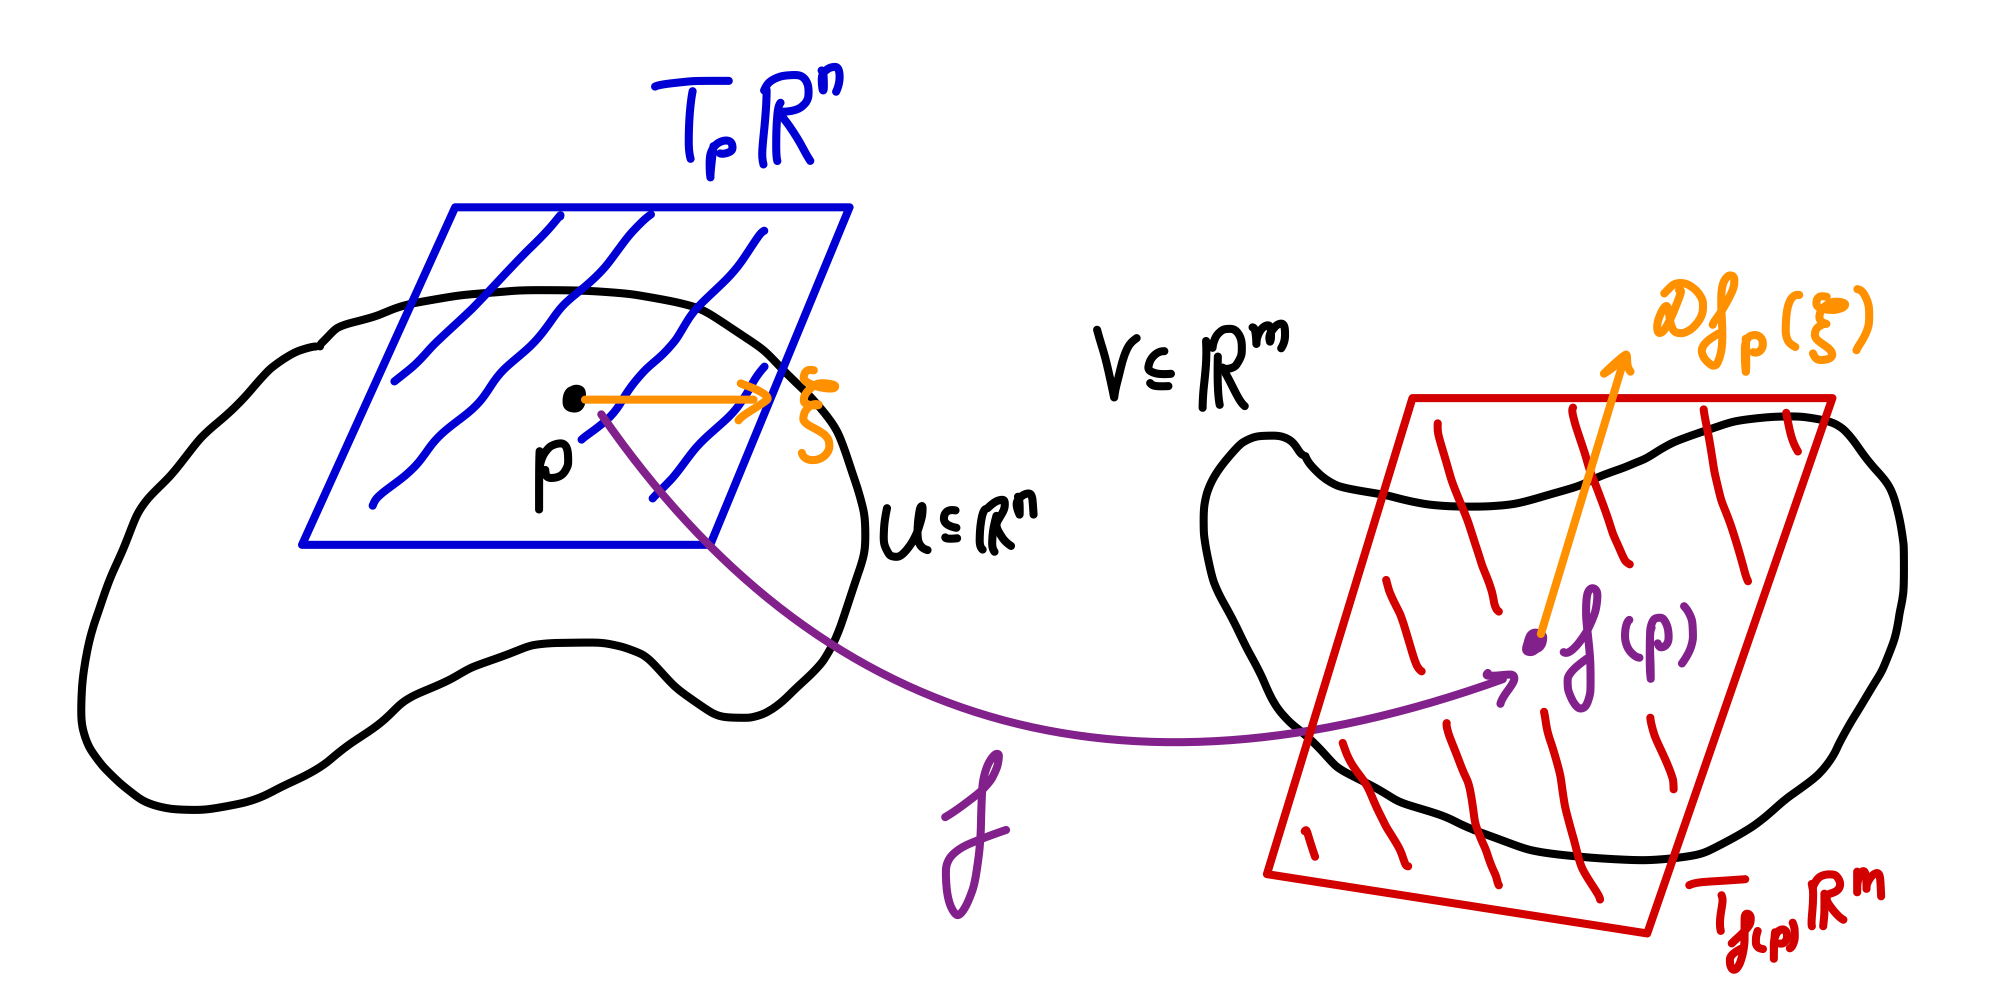 T_p ℝ^n
p
ξ
U ⊆ ℝ^n
f
V ⊆ ℝ^m
Df_p(ξ)
f(p)
T_{f(p)} ℝ^m